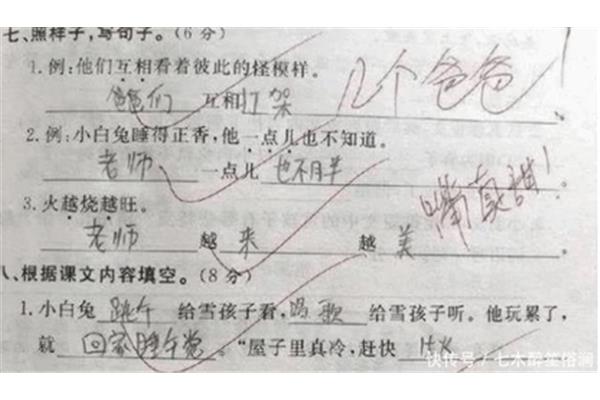 七、照样子，写句子。(6分)
1.例：他们互相看着彼此的怪模样。
爸爸们 互相打架。
几个爸爸!
2.例：小白兔睡得正香，他一点儿也不知道。
老师 一点儿 也不月半。
3.火越烧越旺。
嘴真甜!
老师 越 来 越 美。
八、根据课文内容填空。(8分)
1.小白兔 跳午 给雪孩子看，唱歌 给雪孩子听。他玩累了，
就 回家睡午觉。“屋子里真冷，赶快
快传号/七木醉笙俗澜